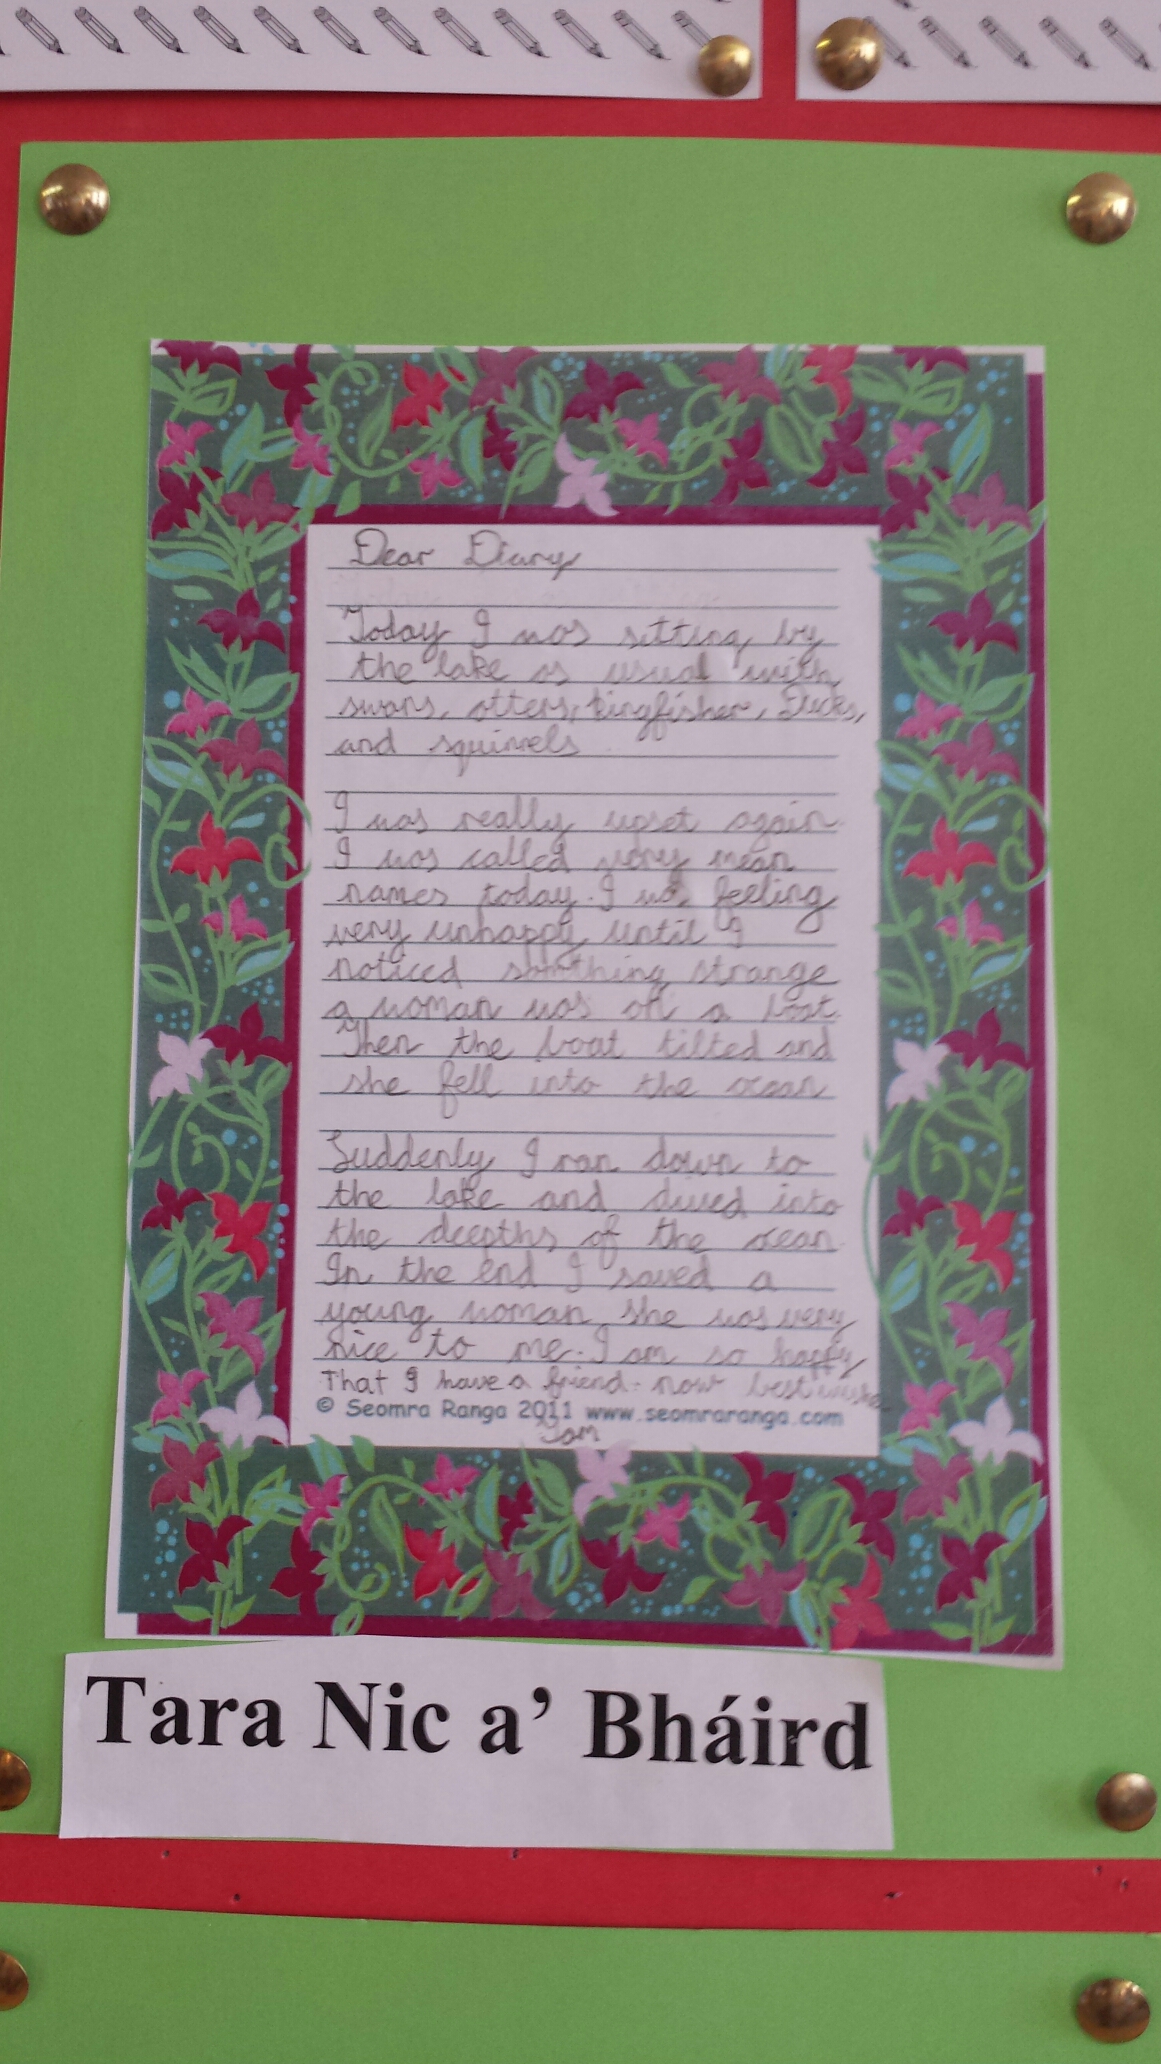 Dear Diary
Today I was sitting by
the lake as usual with
swans, otters, kingfisher, Ducks,
and squirrels
I was really upset again.
I was called very mean
names today. I was feeling
very unhappy until I
noticed somthing strange
a woman was on a boat.
Then the boat tilted and
she fell into the ocean
Suddenly I ran down to
the lake and dived into
the deepths of the ocean.
In the end I saved a
young woman she was very
nice to me. I am so happy
That I have a friend. now best wishe
© Seomra Ranga 2011 www.seomraranga.com
Tom
Tara Nic a' Bháird